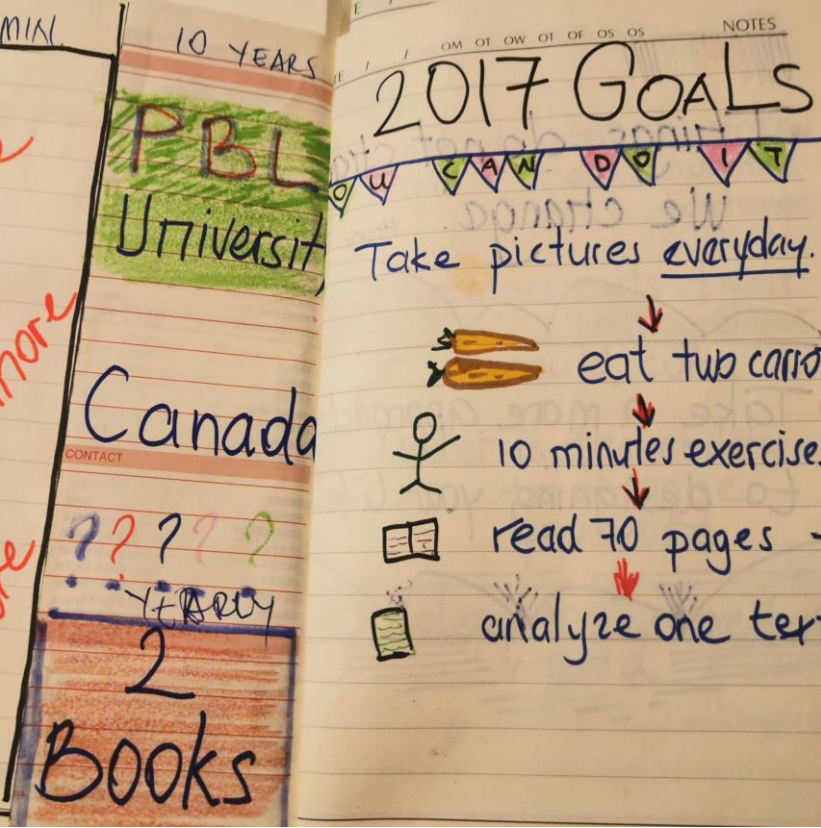 MIN
10 YEARS
PBL
Universit
Canada
CONTACT
? ? ? ? ?
YEARLY
2
Books
NOTES
2017 GOALS
OU CAN DO IT
We change.
Take pictures everyday.
eat two carro
10 minutes exercise.
read 70 pages -
analyze one tex